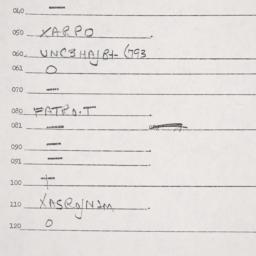 040 —
050 XARPO
060 UNC3HAJB+ (793
061 0
070 —
080 FATPO.T
081 —
090 —
091 —
100 +
110 XASPO/NJM
120 0